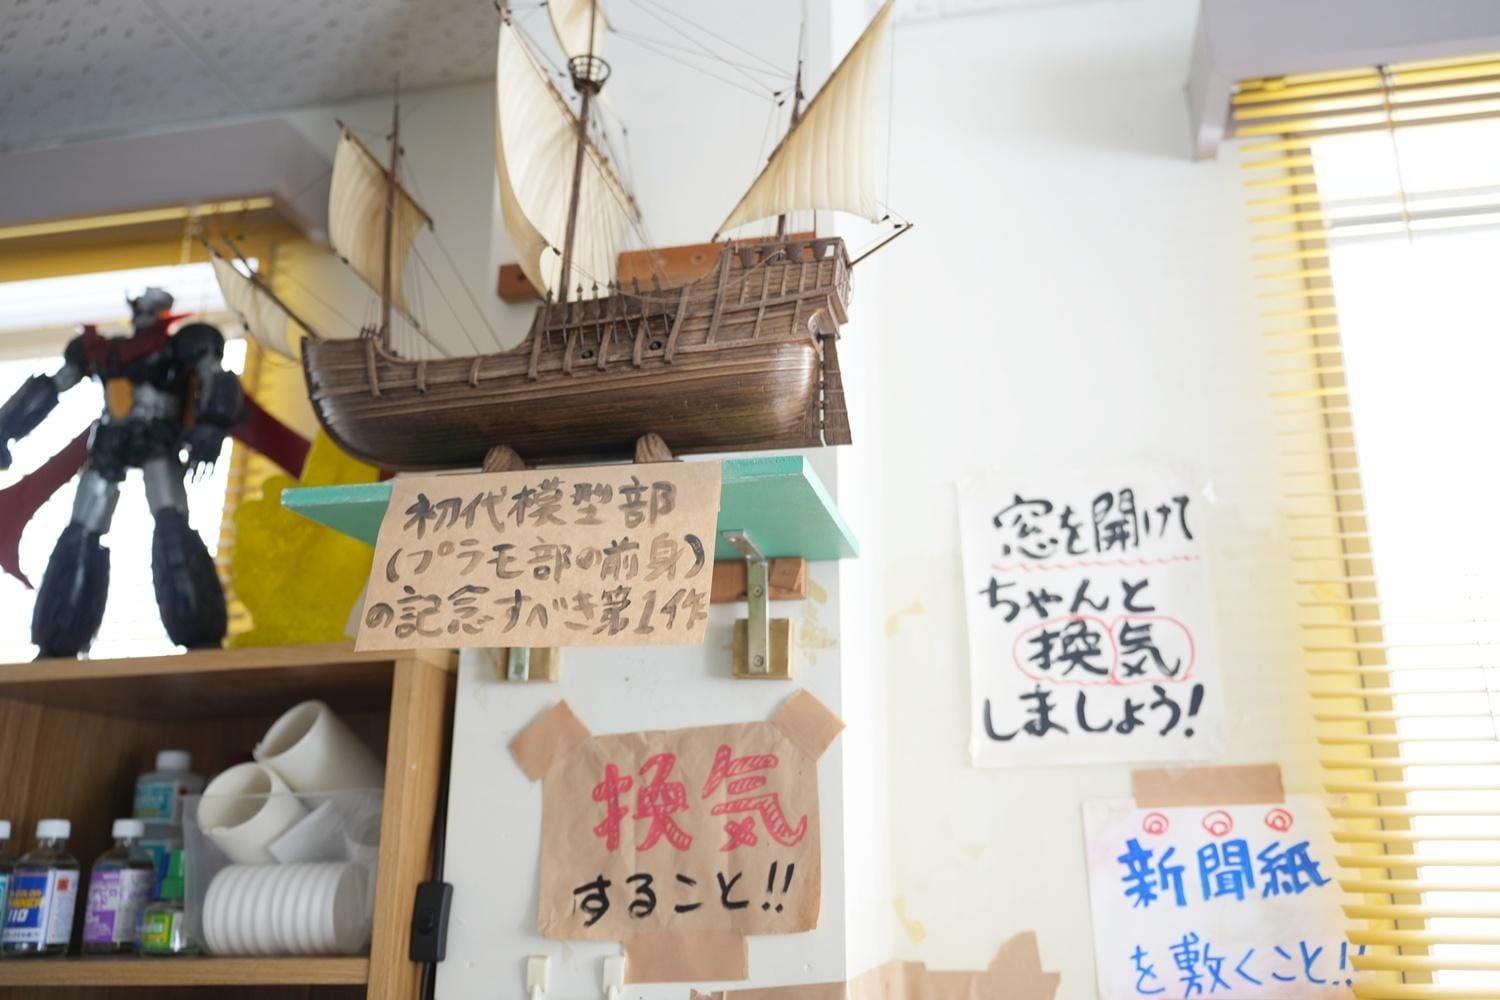 初代模型部
(プラモ部の前身)
の記念すべき第1作
窓を開けて
ちゃんと
換気
しましょう!
換気
すること!!
新聞紙
を敷くこと!!
110